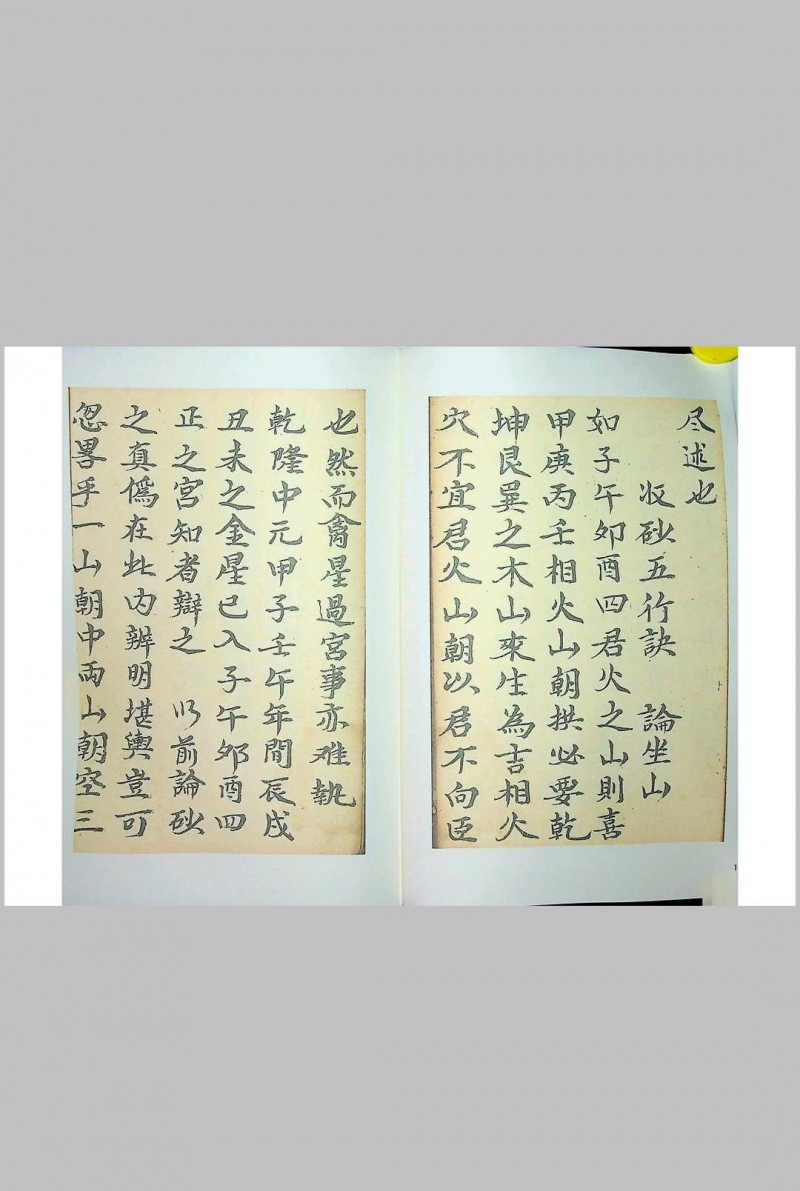 尽述也
收砂五行訣　論坐山
如子午夘酉四君火之山則喜
甲庚丙壬相火山朝拱必要乾
坤艮巽之木山來生為吉相火
穴不宜君火山朝以君不向臣
也然而禽星過宮事亦难執
乾隆中元甲子壬午年間辰戌
丑未之金星已入子午夘酉四
正之宮知者辯之　以前論砂
之真偽在此内辨明堪輿豈可
忽畧乎一山朝中両山朝空三
1